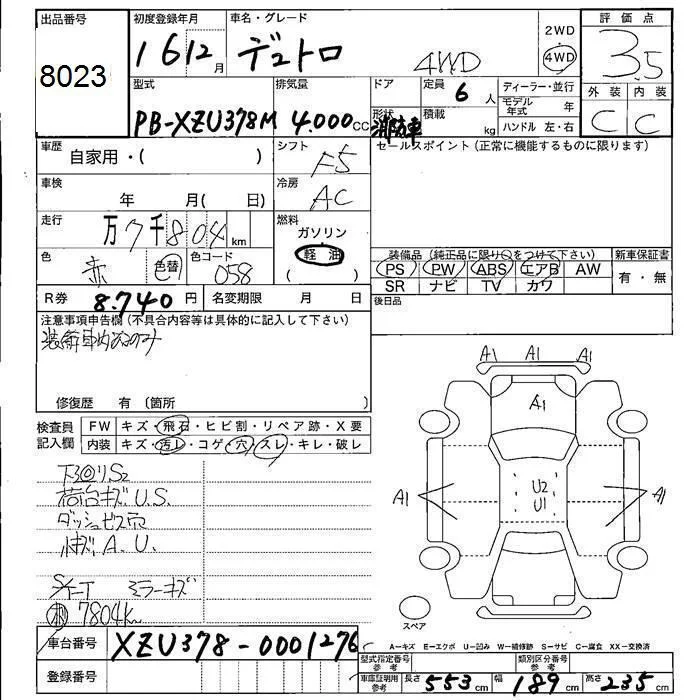 出品番号 初度登録年月 車名・グレード 評価点
8023 16 12月 デュトロ 4WD 2WD 4WD 3.5
型式 排気量 ドア 定員 6人 ディーラー・並行 外装 内装
PB-XZU378M 4.000cc 形状 消防車 積載 kg モデル年式 年 ハンドル 左・右 C C
車歴 自家用・( ) シフト F5 セールスポイント(正常に機能するものに限ります)
車検 年 月( 日) 冷房 AC
走行 万7千804km 燃料 ガソリン 軽油 ( )
色 赤 色替 色コード 058 装備品(純正品に限り○をつけて下さい) 新車保証書
PS PW ABS エアB AW 有・無
SR ナビ TV カワ
R券 8.740円 名変期限 月 日 後日品
注意事項申告欄(不具合内容等は具体的に記入して下さい)
修復歴 有(箇所 )
検査員記入欄 FW キズ・飛石・ヒビ割・リペア跡・X要
内装 キズ・汚レ・コゲ・穴・スレ・キレ・破レ
A1 A1 A1
A1
A1 U2 A1
U1
S2
荷台キズ U.S.
ダッシュビス穴
A.U.
ミラーキズ
7804km
スペア
車台番号 XZU378-0001276
A-キズ E-エクボ U-凹み W-補修跡 S-サビ C-腐食 XX-交換済
登録番号 型式指定番号参考 類別区分番号参考
車庫証明用参考 長さ 553cm 幅 189cm 高さ 235cm